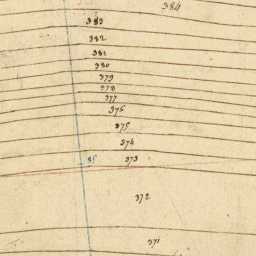 384
383
382
381
380
379
378
377
376
375
374
35 373
372
371